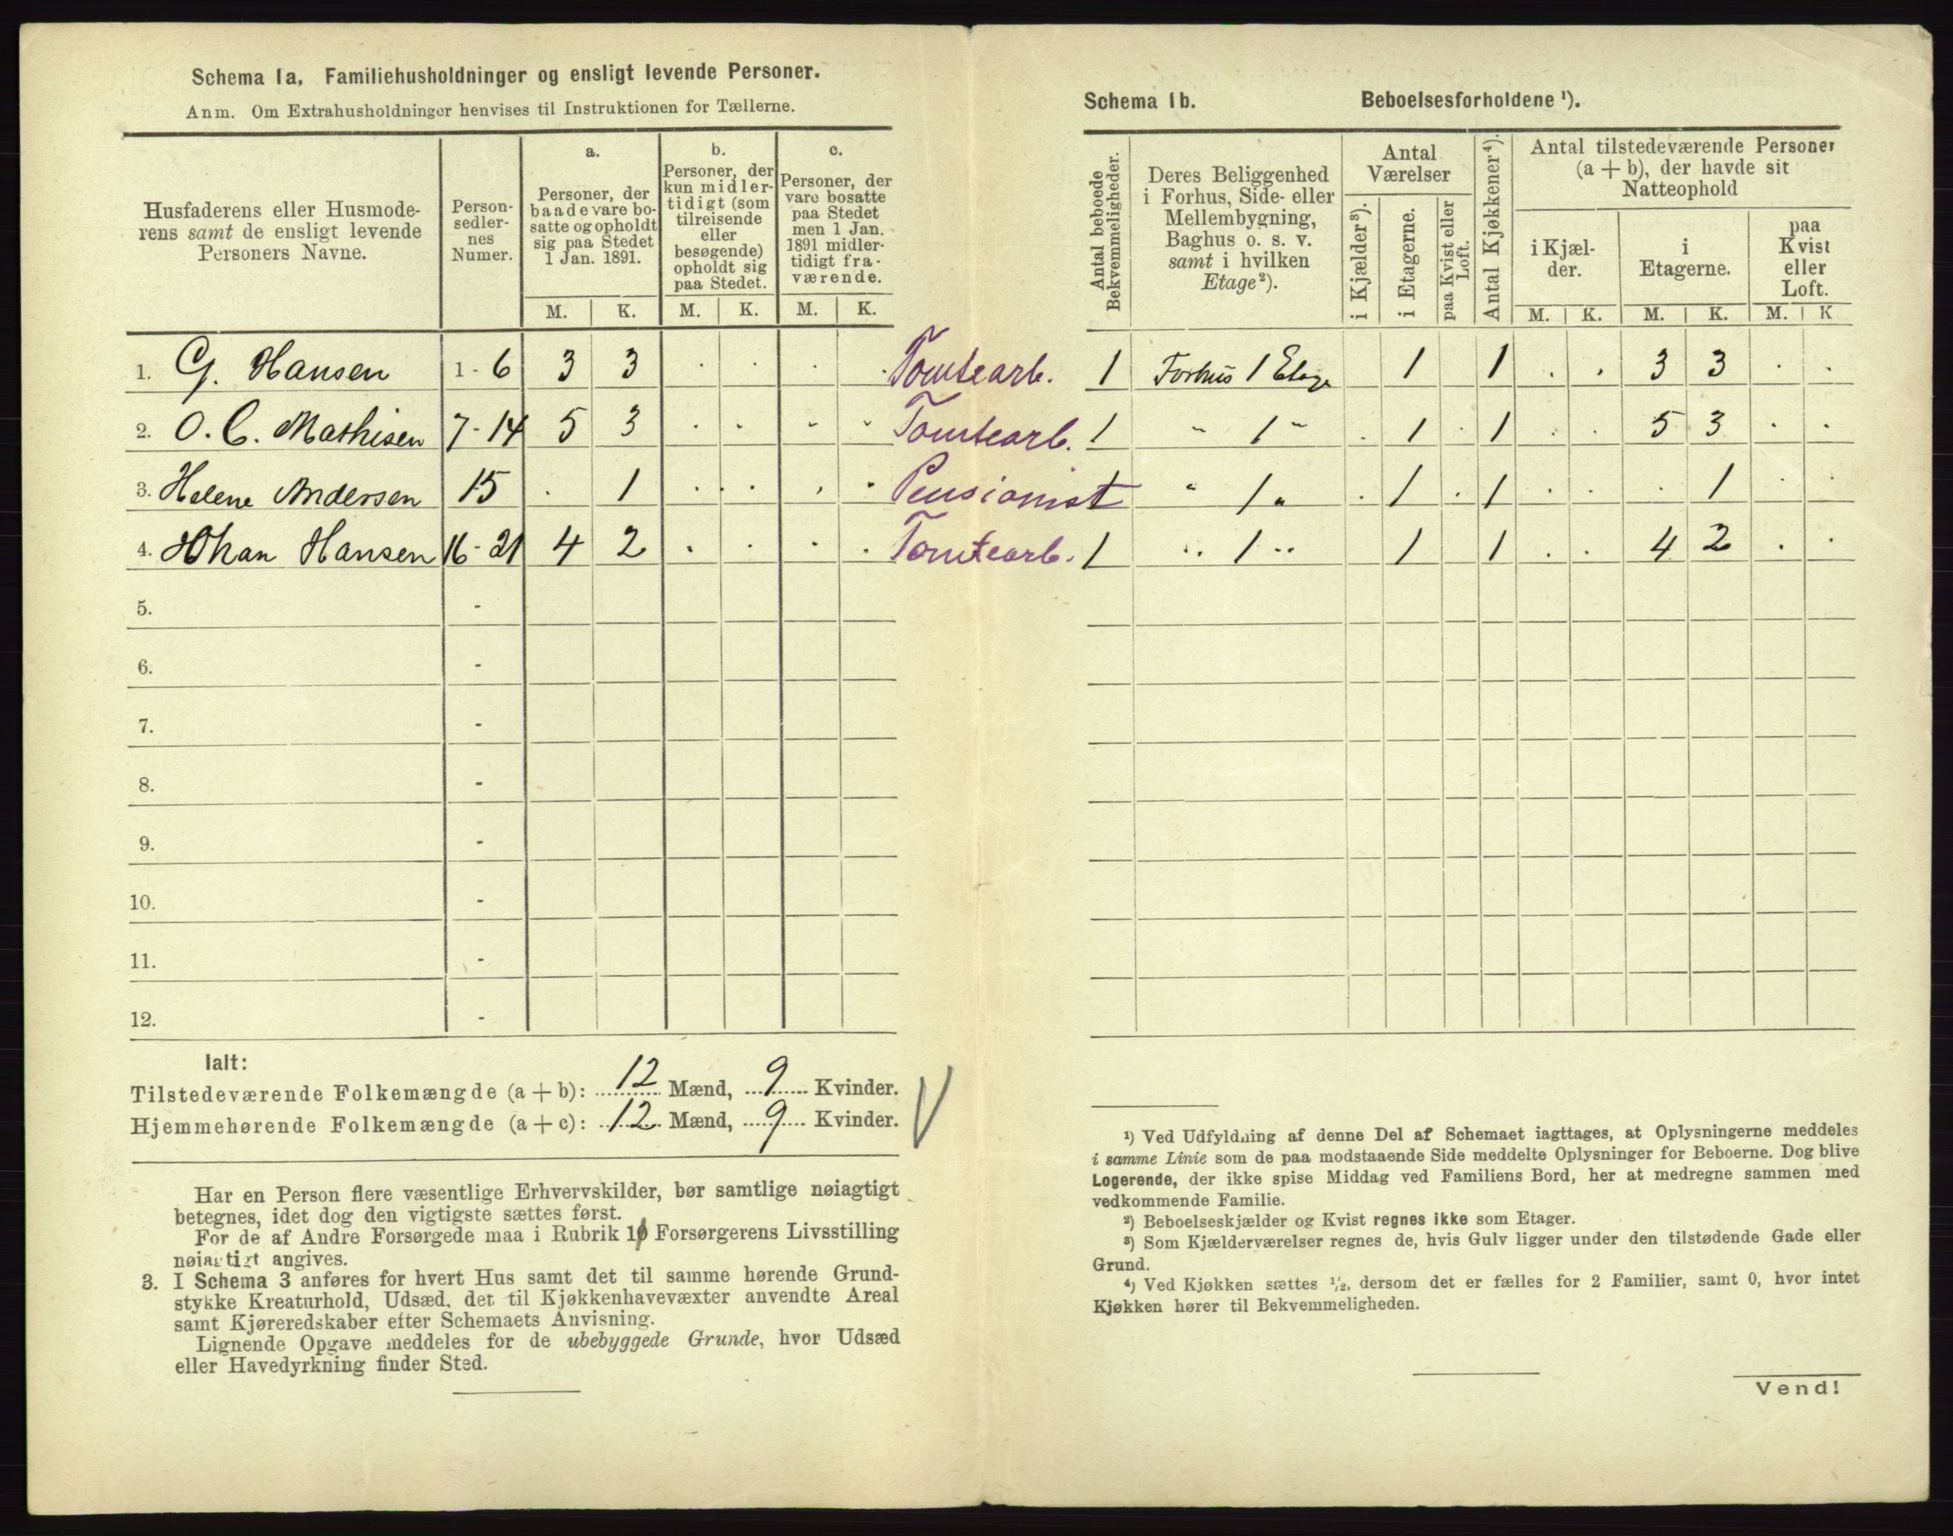 Schema 1a, Familiehusholdninger og ensligt levende Personer.
Anm. Om Extrahusholdninger henvises til Instruktionen for Tællerne.
Husfaderens eller Husmode-
rens samt de ensligt levende
Personers Navne.
Person-
sedler-
nes
Numer.
a.
Personer, der
baade vare bo-
satte og opholdt
sig paa Stedet
1 Jan. 1891.
b.
Personer, der
kun midler-
tidigt (som
tilreisende
eller
besøgende)
opholdt sig
paa Stedet.
c.
Personer, der
vare bosatte
paa Stedet
men 1 Jan.
1891 midler-
tidigt fra-
værende.
M. K. M. K. M. K.
1. G. Hansen 1 - 6 3 3 . . . . Tomtearb.
2. O. C. Mathisen 7 - 14 5 3 . . . . Tomtearb.
3. Helene Andersen 15 . 1 . . . . Pensionist
4. Johan Hansen 16 - 21 4 2 . . . . Tomtearb.
5. -
6. -
7. -
8. -
9. -
10. -
11. -
12. -
Ialt:
Tilstedeværende Folkemængde (a + b): 12 Mænd, 9 Kvinder.
Hjemmehørende Folkemængde (a + c): 12 Mænd, 9 Kvinder.
Har en Person flere væsentlige Erhvervskilder, bør samtlige nøiagtigt
betegnes, idet dog den vigtigste sættes først.
For de af Andre Forsørgede maa i Rubrik 10 Forsørgerens Livsstilling
nøiagtigt angives.
3. I Schema 3 anføres for hvert Hus samt det til samme hørende Grund-
stykke Kreaturhold, Udsæd, det til Kjøkkenhavevæxter anvendte Areal
samt Kjøreredskaber efter Schemaets Anvisning.
Lignende Opgave meddeles for de ubebyggede Grunde, hvor Udsæd
eller Havedyrkning finder Sted.
Schema 1b. Beboelsesforholdene ¹).
Antal beboede
Bekvemmeligheder.
Deres Beliggenhed
i Forhus, Side- eller
Mellembygning,
Baghus o. s. v.
samt i hvilken
Etage ²).
Antal
Værelser
i Kjælder ³).
i Etagerne.
paa Kvist eller
Loft.
Antal Kjøkkener ⁴).
Antal tilstedeværende Personer
(a + b), der havde sit
Natteophold
i Kjæl-
der.
i
Etagerne.
paa
Kvist
eller
Loft.
M. K. M. K. M. K
1 Forhus 1 Etage 1 1 . . 3 3 . .
1 " 1 " . 1 . 1 . . 5 3 . .
1 " 1 " . 1 . 1 . . . 1 . .
1 " 1 " 1 1 . . 4 2 . .
¹) Ved Udfyldning af denne Del af Schemaet iagttages, at Oplysningerne meddeles
i samme Linie som de paa modstaaende Side meddelte Oplysninger for Beboerne. Dog blive
Logerende, der ikke spise Middag ved Familiens Bord, her at medregne sammen med
vedkommende Familie.
²) Beboelseskjælder og Kvist regnes ikke som Etager.
³) Som Kjælderværelser regnes de, hvis Gulv ligger under den tilstødende Gade eller
Grund.
⁴) Ved Kjøkken sættes ½, dersom det er fælles for 2 Familier, samt 0, hvor intet
Kjøkken hører til Bekvemmeligheden.
Vend!